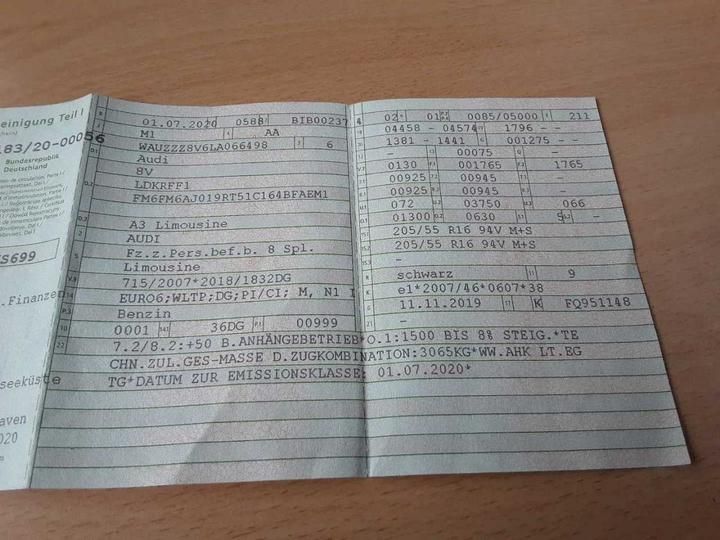 einigung Teil I
183/20-00056
Bundesrepublik
Deutschland
S699
.Finanzen
seeküste
aven
020
01.07.2020 0588 BIB00237
M1 AA
WAUZZZ8V6LA066498 6
Audi
8V
LDKRFF1
FM6FM6AJ019RT51C164BFAEM1
A3 Limousine
AUDI
Fz.z.Pers.bef.b. 8 Spl.
Limousine
715/2007*2018/1832DG
EURO6;WLTP;DG;PI/CI; M, N1 I
Benzin
0001 36DG 00999
02 01 0085/05000 211
04458 - 04574 1796 -
1381 - 1441 001275 -
- 00075 -
0130 001765 1765
00925 00945 -
00925 00945 -
072 03750 066
01300 0630 5 -
205/55 R16 94V M+S
205/55 R16 94V M+S
-
schwarz 9
e1*2007/46*0607*38
11.11.2019 K FQ951148
-
7.2/8.2:+50 B.ANHÄNGEBETRIEB*O.1:1500 BIS 8% STEIG.*TE
CHN.ZUL.GES-MASSE D.ZUGKOMBINATION:3065KG*WW.AHK LT.EG
TG*DATUM ZUR EMISSIONSKLASSE: 01.07.2020*